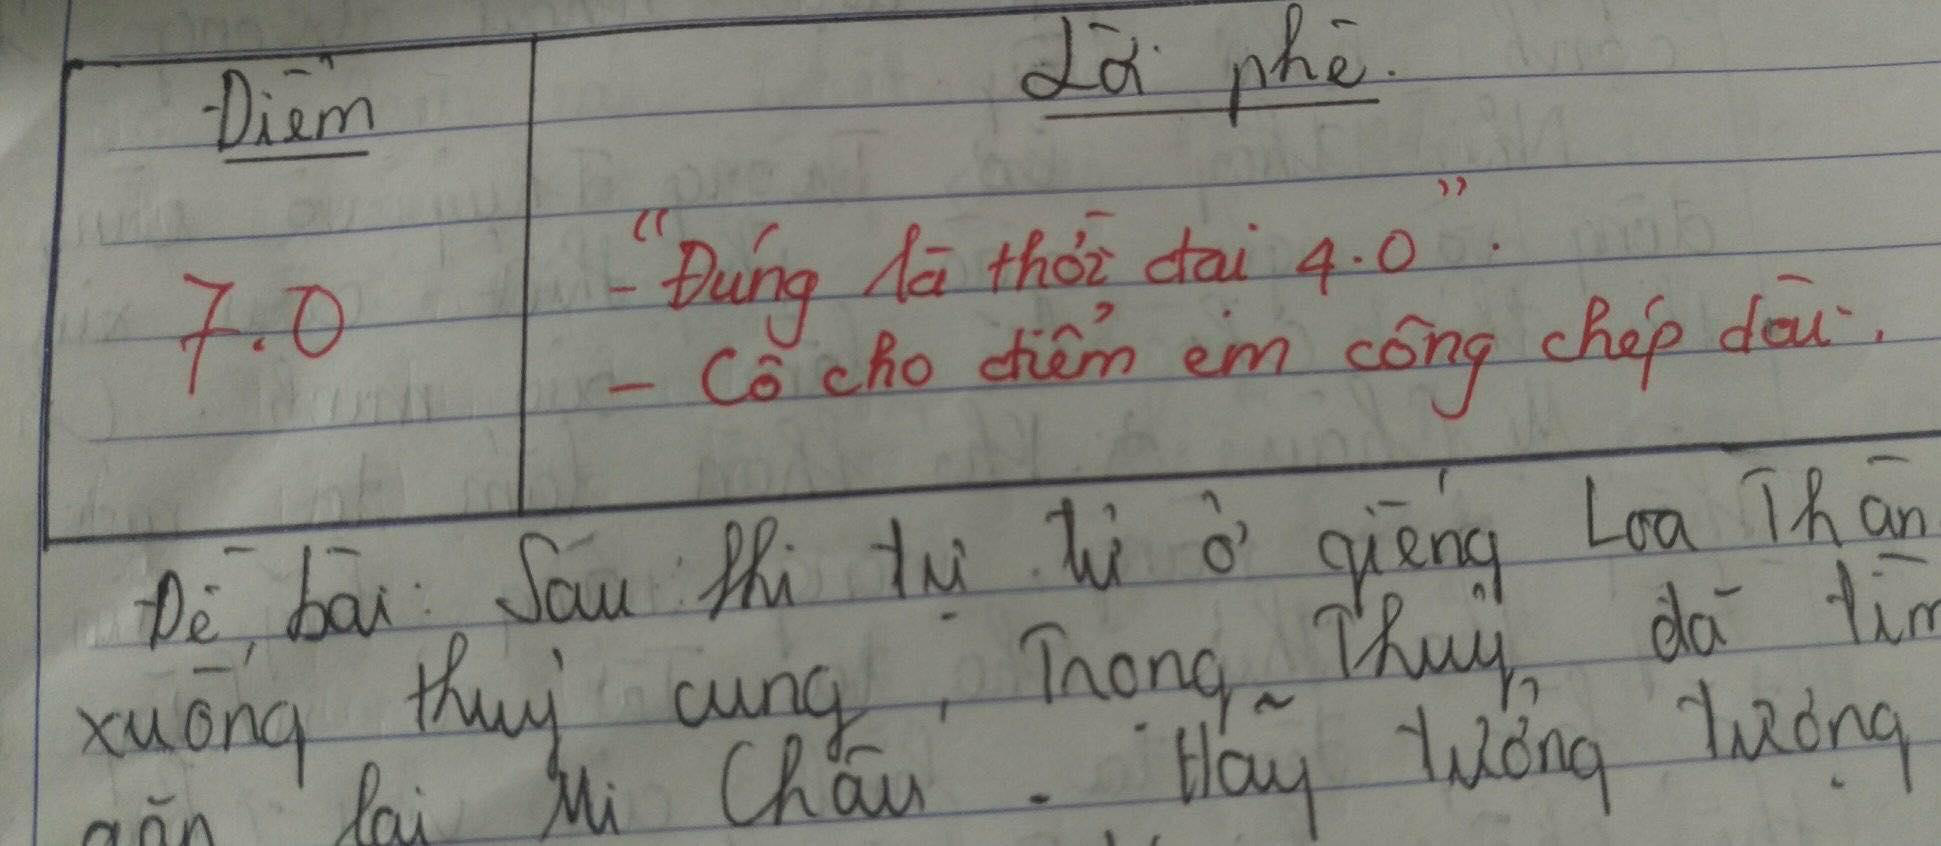 Điểm
Lời phê.
7.0
- "Đúng là thời đại 4.0".
- Cô cho điểm em công chép dài.
Đề bài: Sau khi tự tử ở giếng Loa Thàn
xuống thuỷ cung, Trọng Thuỷ đã tìm
gặp lại Mị Châu. Hãy tưởng tượng